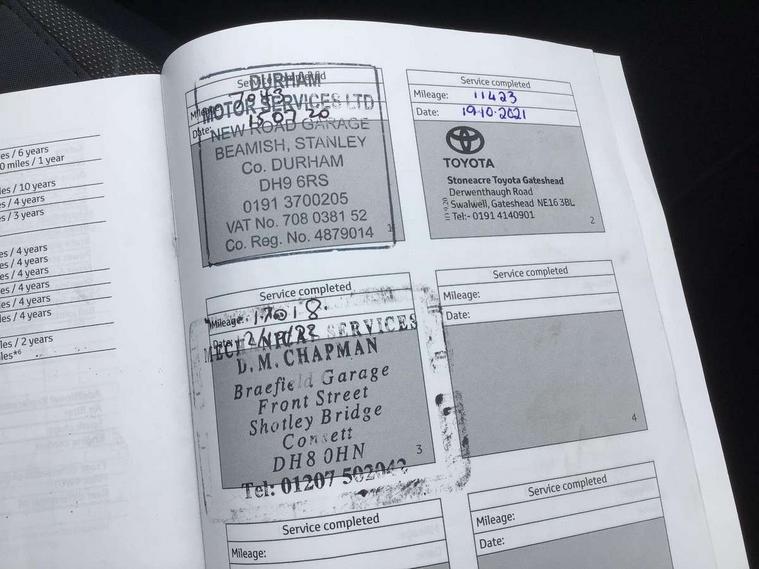 es / 6 years
0 miles / 1 year
es / 10 years
es / 4 years
s / 3 years
es / 4 years
es / 4 years
es / 4 years
es / 4 years
es / 4 years
s / 4 years
les / 2 years
les*6
Service completed
Mileage: 7043
Date: 15 07 20
DURHAM
MOTOR SERVICES LTD
NEW ROAD GARAGE
BEAMISH, STANLEY
Co. DURHAM
DH9 6RS
0191 3700205
VAT No. 708 0381 52
Co. Reg. No. 4879014
1
Service completed
Mileage: 11423
Date: 19·10·2021
TOYOTA
Stoneacre Toyota Gateshead
Derwenthaugh Road
Swalwell, Gateshead NE16 3BL
Tel:- 0191 4140901
2
Service completed
Mileage:
Date:
MECHANICAL SERVICES
D. M. CHAPMAN
Braefield Garage
Front Street
Shotley Bridge
Consett
DH8 0HN
Tel: 01207 502042
3
Service completed
Mileage:
Date:
4
Service completed
Mileage:
Service completed
Mileage:
Date: